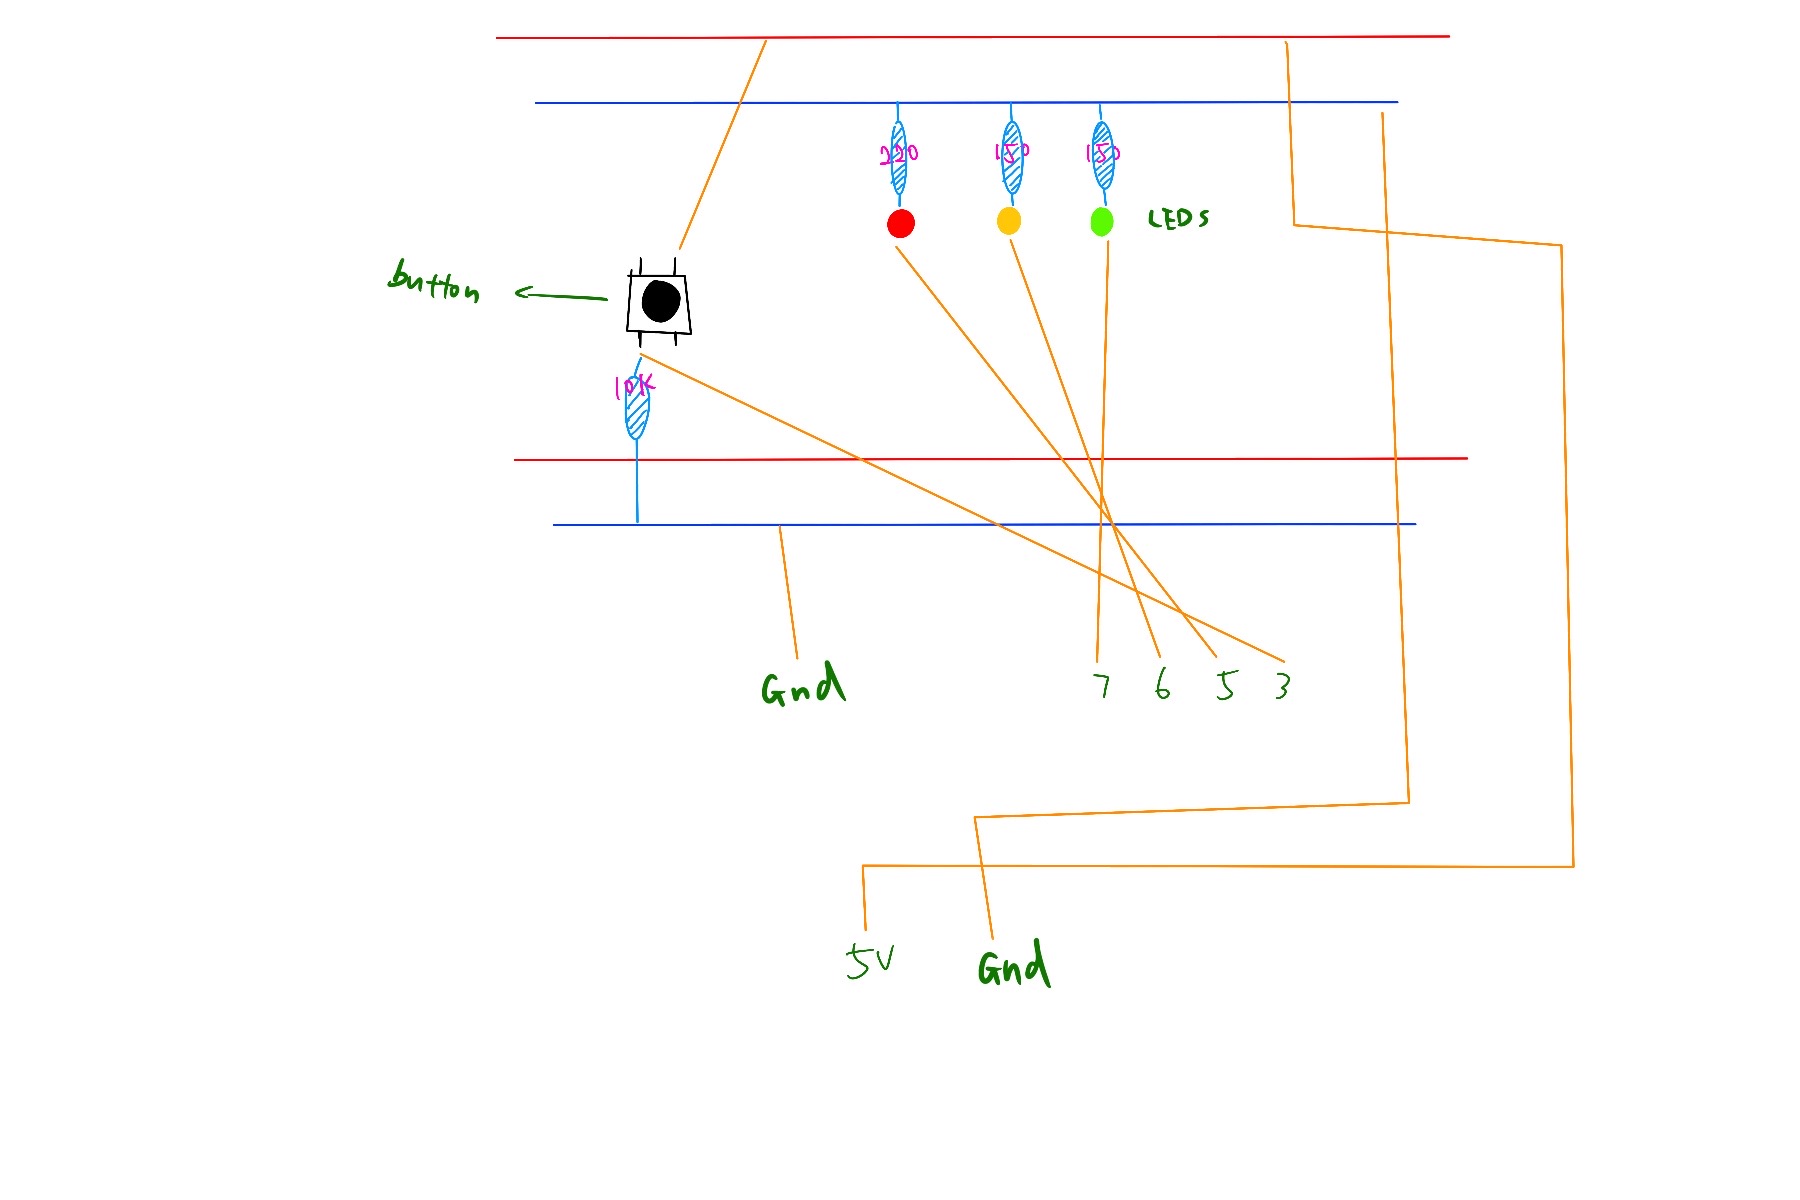 220 150 150
LEDs
button
10K
Gnd
7 6 5 3
5V Gnd